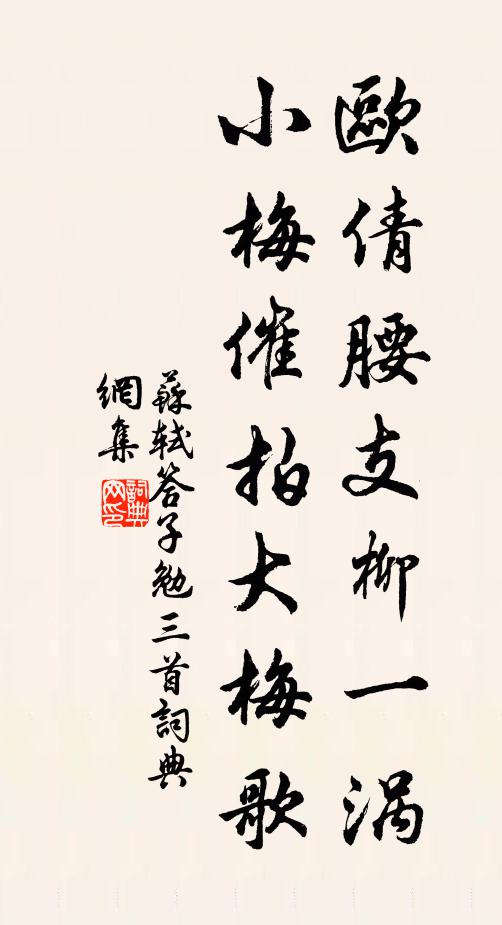 歐倩腰支柳一渦
小梅催拍大梅歌
蘇軾答子勉三首詞典
網集
詞典
網印